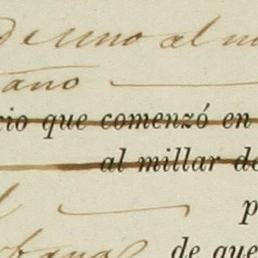 de uno al m
ano
cio que comenzó en
al millar de
p
de que